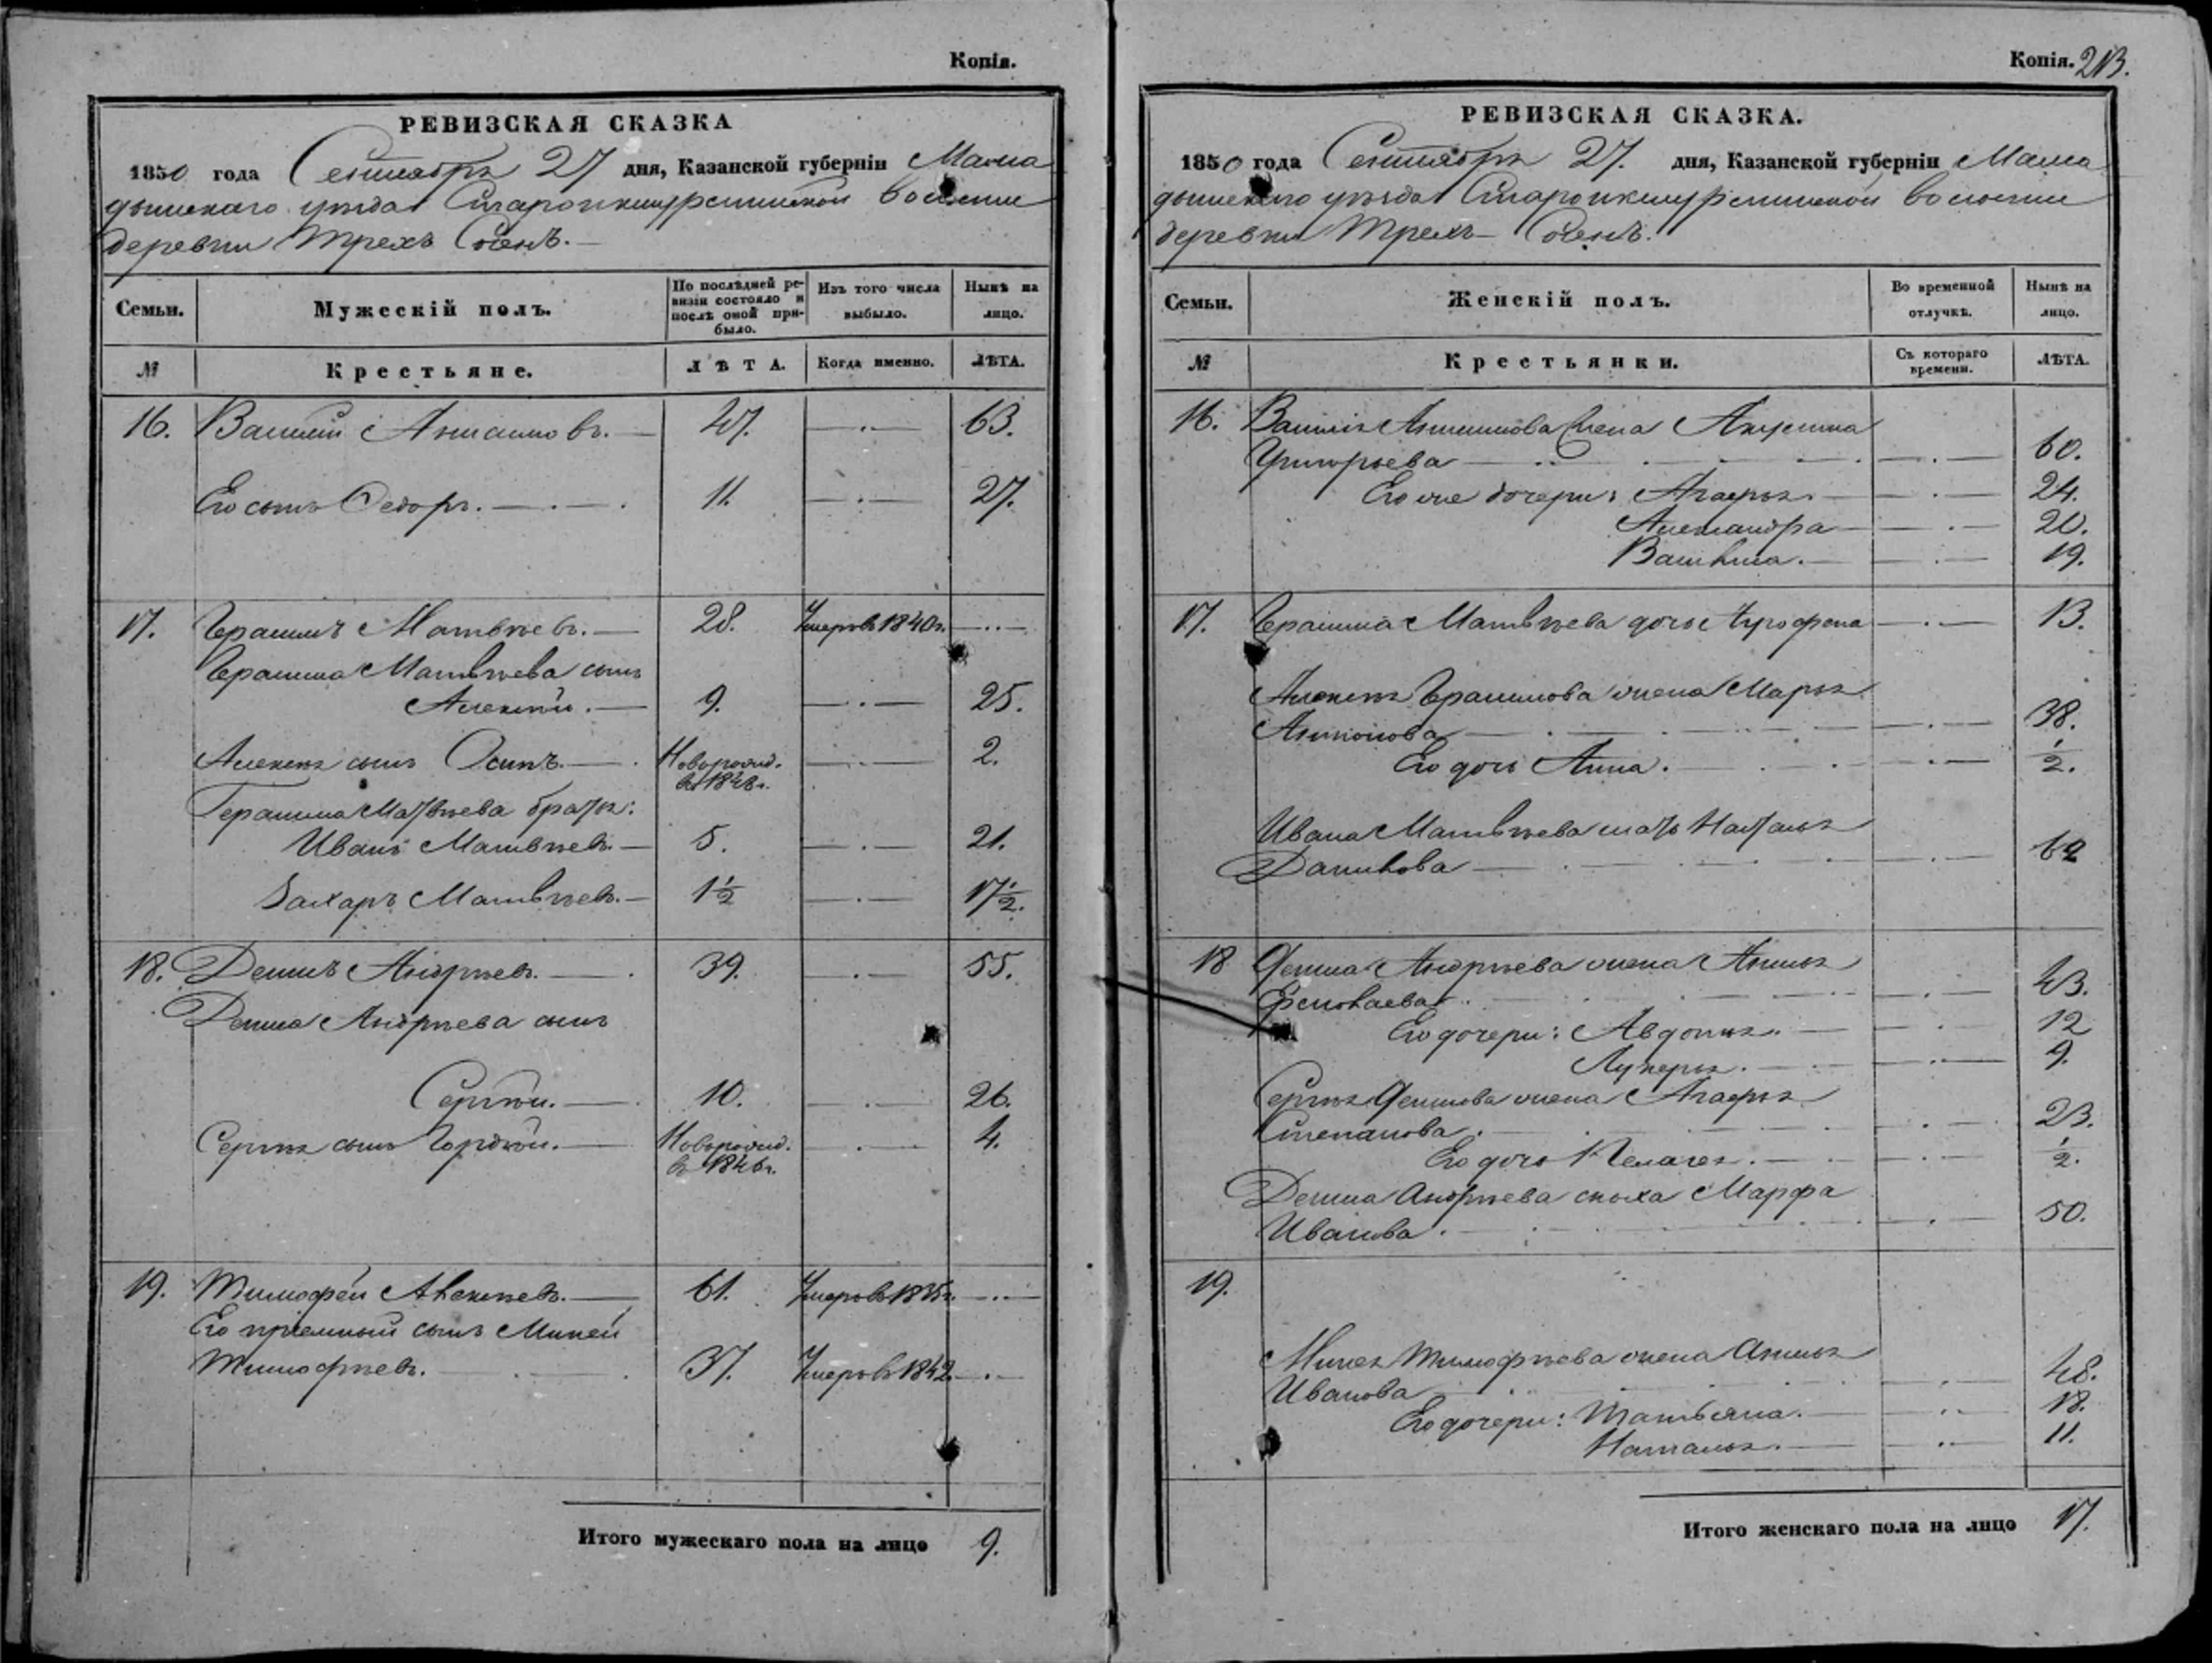 Копія.
РЕВИЗСКАЯ СКАЗКА
1850 года Сентября 27 дня, Казанской губерніи Мама
дышскаго уѣзда Староикшурминской волости
деревни Трехъ Соенъ.
Семьи.
Мужескій полъ.
По послѣдней ре-
визіи состояло и
послѣ оной при-
было.
Изъ того числа
выбыло.
Нынѣ на
лицо.
№
Крестьяне.
ЛѢТА.
Когда именно.
ЛѢТА.
16. Василий 47. 63.
Его сынъ Ѳедоръ. 11. 27.
17. Герасимъ Матвѣевъ. 28. Умеръ въ 1840 г.
Герасима Матвѣева сынъ
Алексѣй. 9. 25.
Алексѣя сынъ Осипъ. Новорожд. 2.
въ 1848 г.
Герасима Матвѣева братья:
Иванъ Матвѣевъ. 5. 21.
Захаръ Матвѣевъ. 1½ 17½.
18. Демидъ Андрѣевъ. 39. 55.
Андрѣева сынъ
Сергѣй. 10. 26.
Сергѣя сынъ Гордѣй. Новорожд. 4.
въ 1846 г.
19. Тимофей Алексѣевъ. 61. Умеръ въ 1835 г.
Его приемный сынъ Миней
Тимофѣевъ. 37. Умеръ въ 1842.
Итого мужескаго пола на лицо 9.
Копія. 213.
РЕВИЗСКАЯ СКАЗКА.
1850 года Сентября 27. дня, Казанской губерніи Мама
дышскаго уѣзда Староикшурминской волости
деревни Трехъ Соенъ.
Семьи.
Женскій полъ.
Во временной
отлучкѣ.
Нынѣ на
лицо.
№
Крестьянки.
Съ котораго
времени.
ЛѢТА.
16. Василья жена Акулина
Григорьева 60.
Его же дочери: Агафья. 24.
Александра 20.
Васильиса. 19.
17. Герасима Матвѣева дочь 13.
Алексѣя Герасимова жена Марья
Антонова 38.
Его дочь Анна. ½.
Ивана Матвѣева мать Наталья
Данилова 62
18 Андрѣева жена Анисья
43.
Его дочери: Авдотья. 12
Лукерья. 9.
Сергѣя жена Агафья
Степанова. 23.
Его дочь Пелагея. ½.
Андрѣева сноха Марфа
Иванова. 50.
19.
Минея Тимофѣева жена Анисья
Иванова 48.
Его дочери: Татьяна. 18.
Наталья. 11.
Итого женскаго пола на лицо 17.